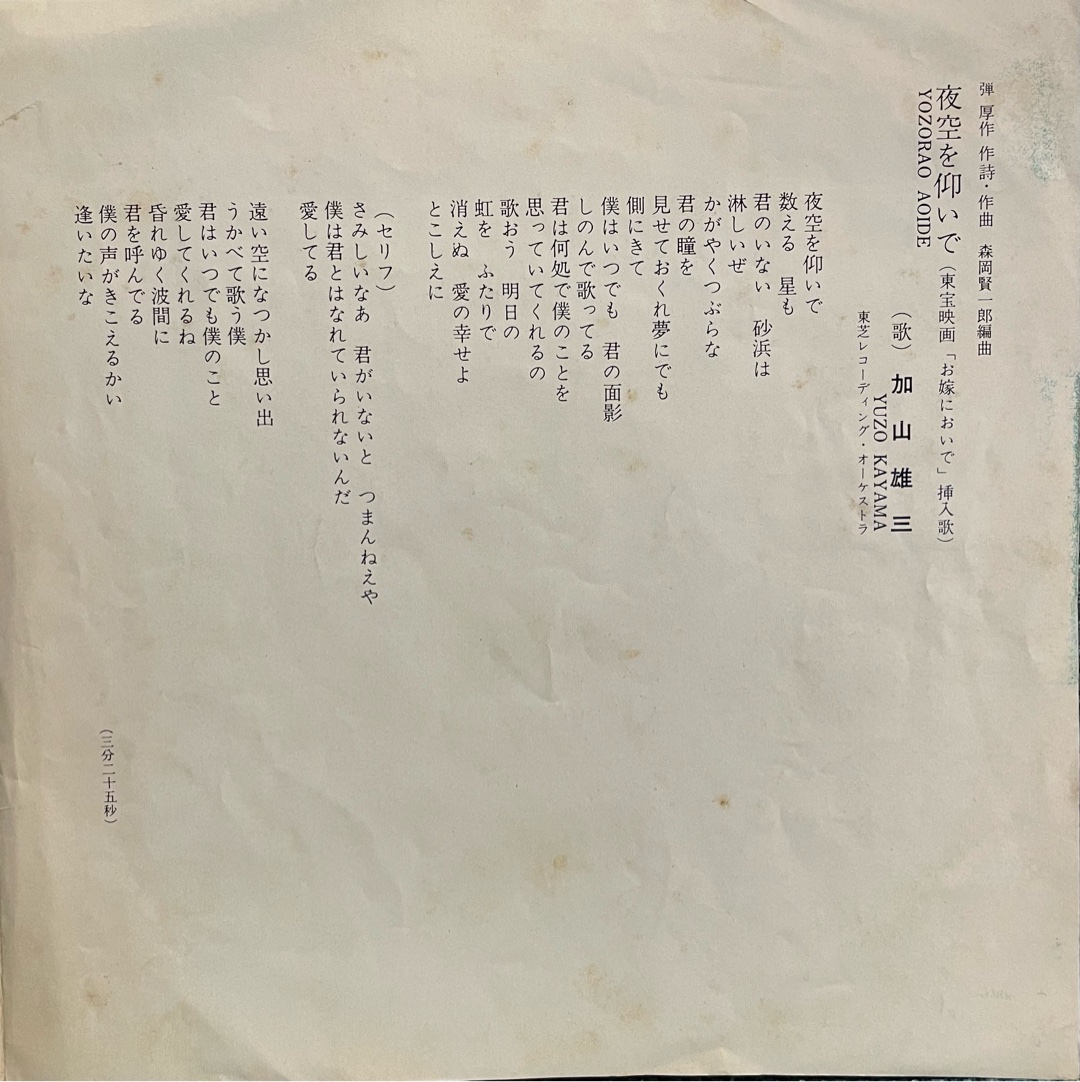 弾 厚作 作詩・作曲 森岡賢一郎編曲
夜空を仰いで(東宝映画「お嫁においで」挿入歌)
YOZORAO AOIDE
(歌) 加山雄三
YUZO KAYAMA
東芝レコーディング・オーケストラ
夜空を仰いで
数える 星も
君のいない 砂浜は
淋しいぜ
かがやくつぶらな
君の瞳を
見せておくれ夢にでも
側にきて
僕はいつでも 君の面影
しのんで歌ってる
君は何処で僕のことを
思っていてくれるの
歌おう 明日の
虹を ふたりで
消えぬ 愛の幸せよ
とこしえに
(セリフ)
さみしいなあ 君がいないと つまんねえや
僕は君とはなれていられないんだ
愛してる
遠い空になつかし思い出
うかべて歌う僕
君はいつでも僕のこと
愛してくれるね
昏れゆく波間に
君を呼んでる
僕の声がきこえるかい
逢いたいな
(三分二十五秒)